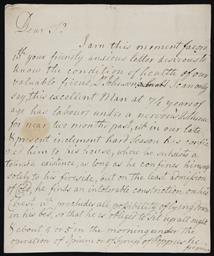 Dear Sr.
I am this moment favord
with your friendly anxious letter desirous to
know the condition of health of our
valuable friend, I can only
say, this excellent Man at 74 years of
age has labour'd under a nervous
for near two months past, in our late
& present inclement hard season, his
him to his house, where he sustains a
existence, as long as he confines himself
solely to his fireside, but on the least admission
of Cold, he finds an intolerable constriction on his
Chest, wch. precludes all possibility of lying down
in his bed, so that he is obliged to sit up all night
& about 4 or 5 in the morning under the
of Opium or Syrup of Poppies he